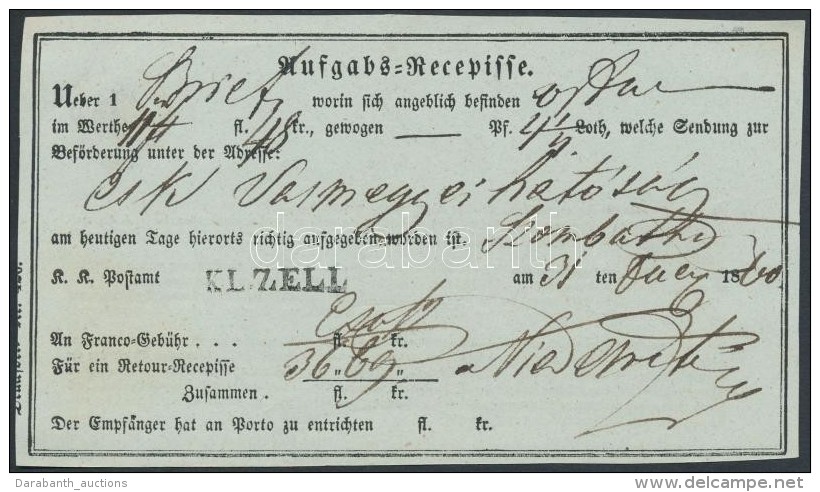 Aufgabs=Recepisse.
Ueber 1 Brief worin sich angeblich befinden
im Werthe fl. 48 kr., gewogen — Pf. Loth, welche Sendung zur
Beförderung unter der Adresse:
csk Vasmegyei hatóság
am heutigen Tage hierorts richtig aufgegeben worden ist. Szombath
darabanth
K. K. Postamt KL. ZELL am 31 ten 1860
An Franco=Gebühr . . . fl. kr.
Für ein Retour=Recepisse
Zusammen . fl. kr.
Der Empfänger hat an Porto zu entrichten fl. kr.
Darabanth_auctions
delcampe.net